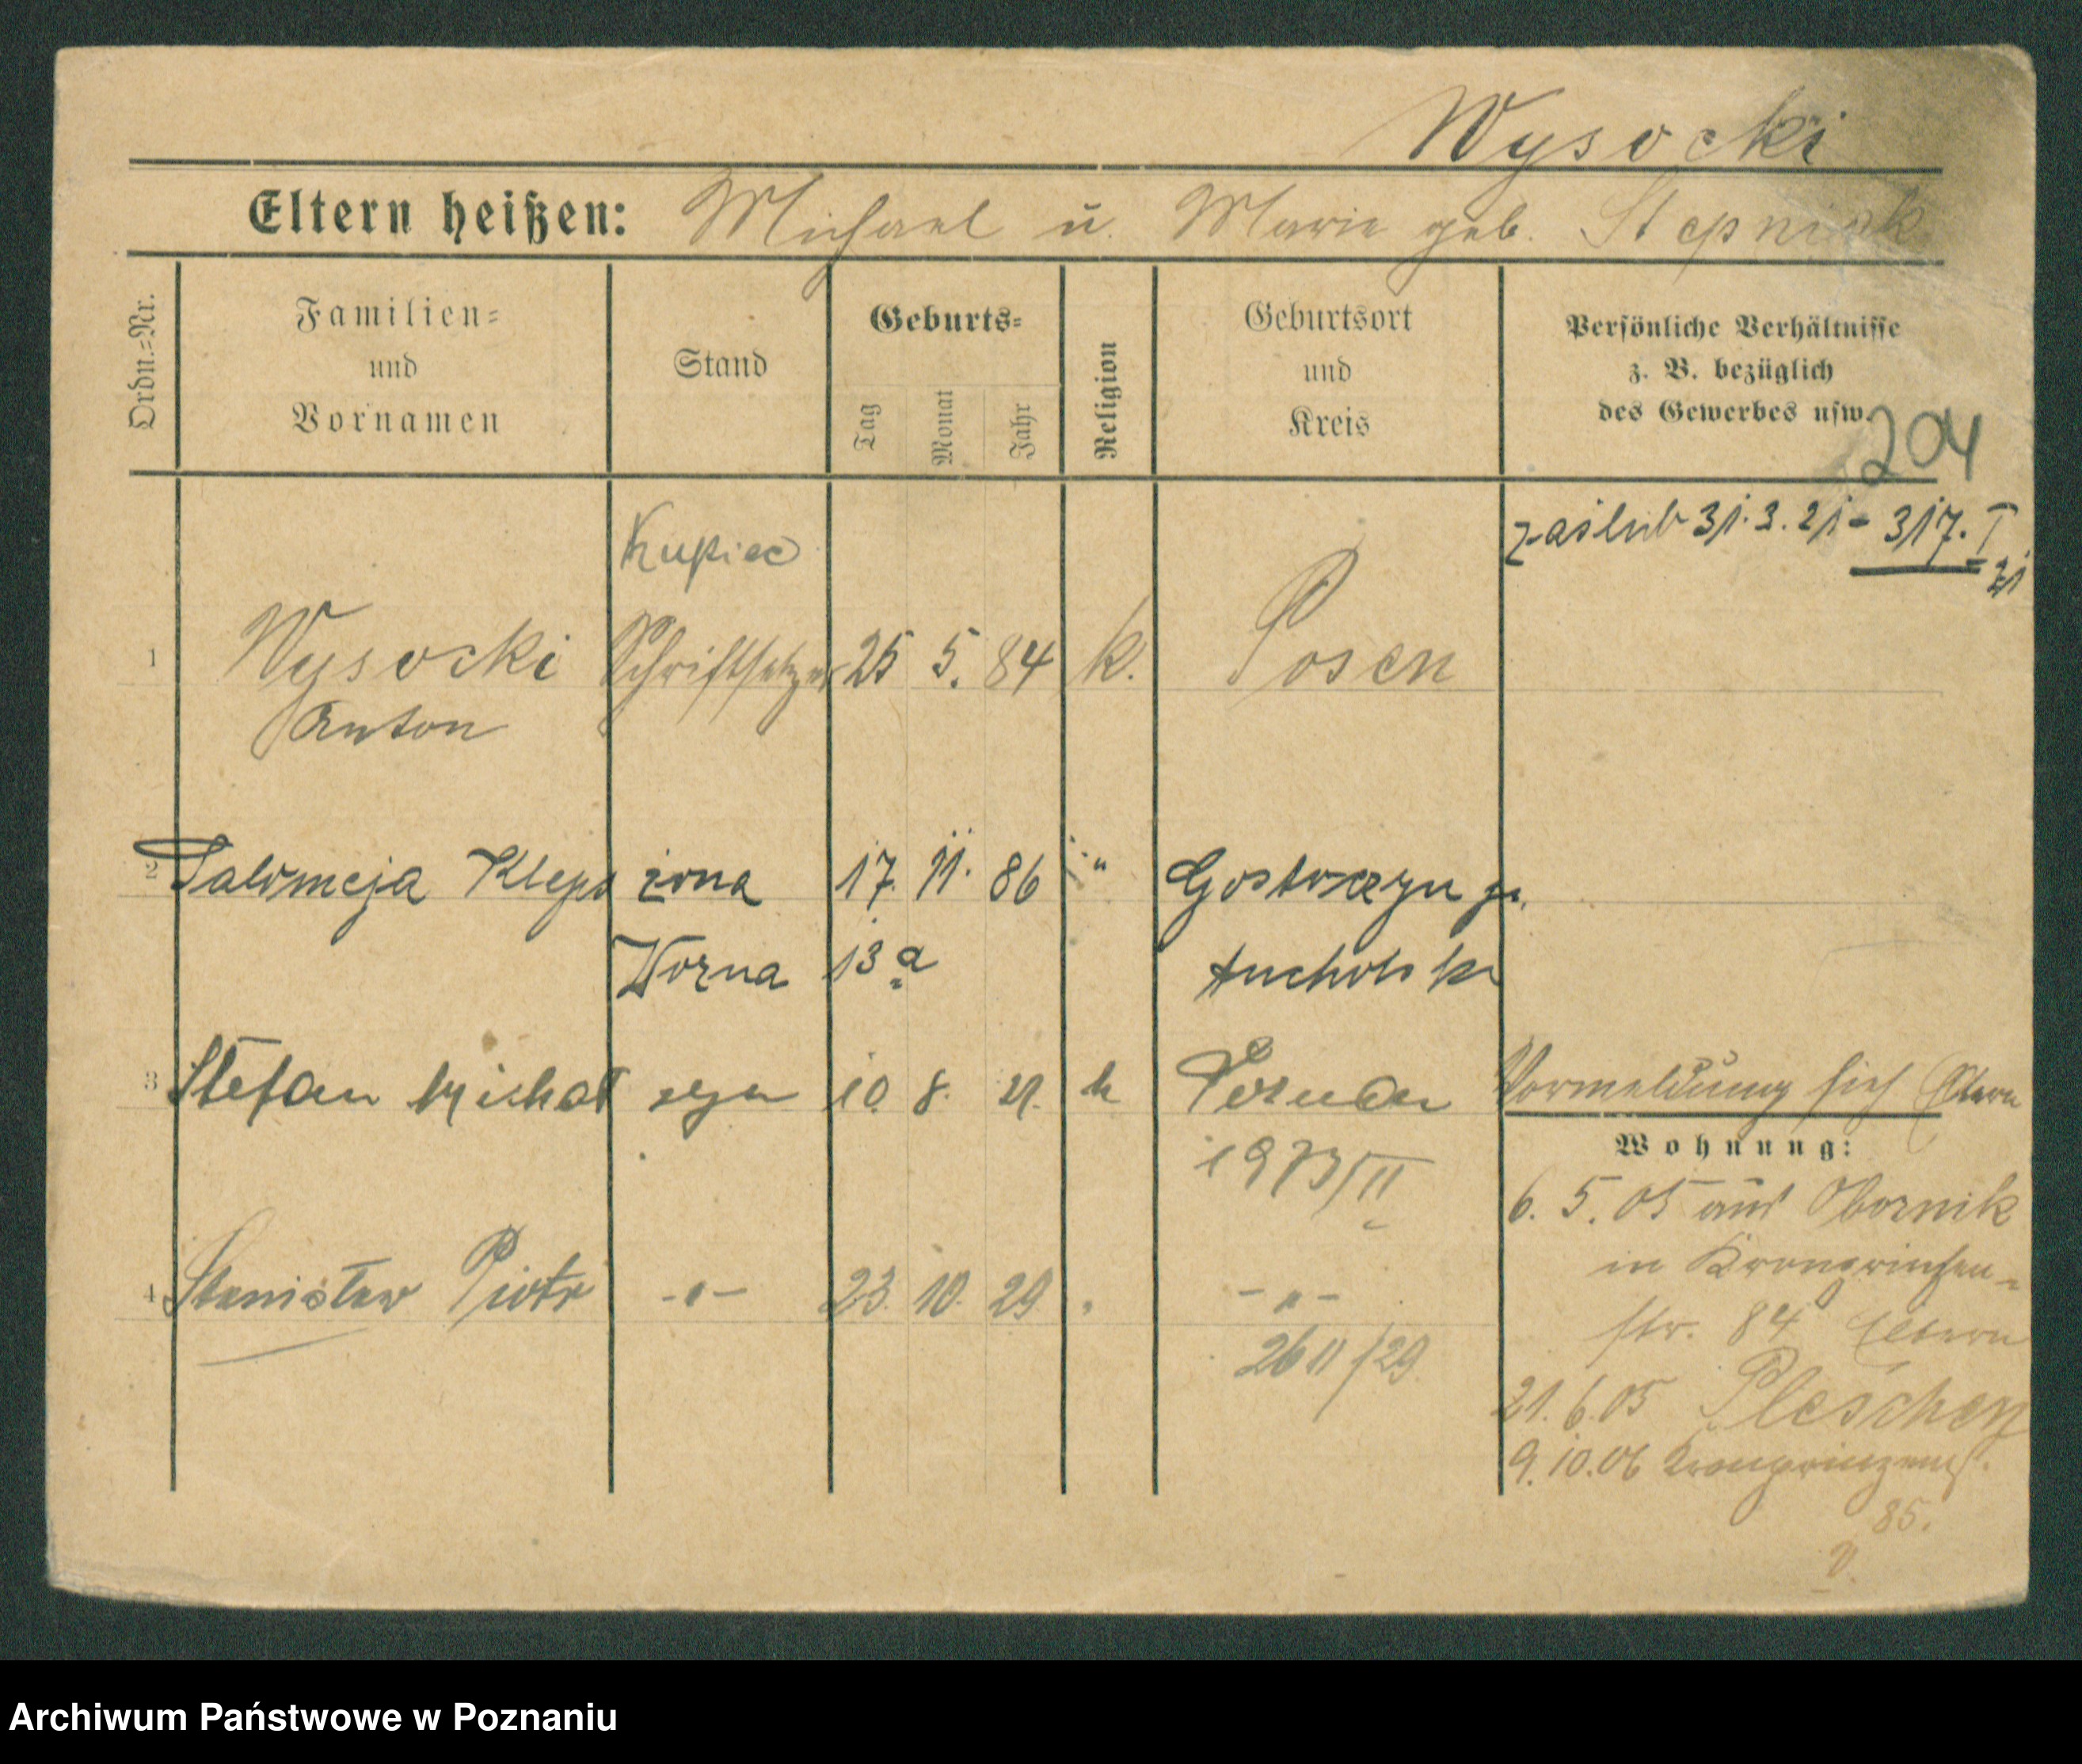 Wysocki
Eltern heißen: Michael u. Marie geb. Stepniak
Ordn.=Nr.
Familien=
und
Vornamen
Stand
Geburts=
Tag
Monat
Jahr
Religion
Geburtsort
und
Kreis
Persönliche Verhältnisse
z. B. bezüglich
des Gewerbes usw.
204
Kupiec
zaślub 31.3.21 - 317. I
21
1 Wysocki Schriftsetzer 25 5. 84 k. Posen
Anton
2 Salomeja Kleps żona 17. 11. 86 " Gostoczyn p.
13 a Tucholski
3 Stefan Michał syn 10. 8. 21. k Poznan
Vormeldung sich Eltern
1973/II
Wohnung:
6. 5. 05 aus Obornik
in Kronprinzen-
str. 84 Eltern
4 Stanisław Piotr -"- 23. 10. 29 " -"-
26 11/29.
21. 6. 05 Pleschen
9. 10. 06 Kronprinzenst.
85.